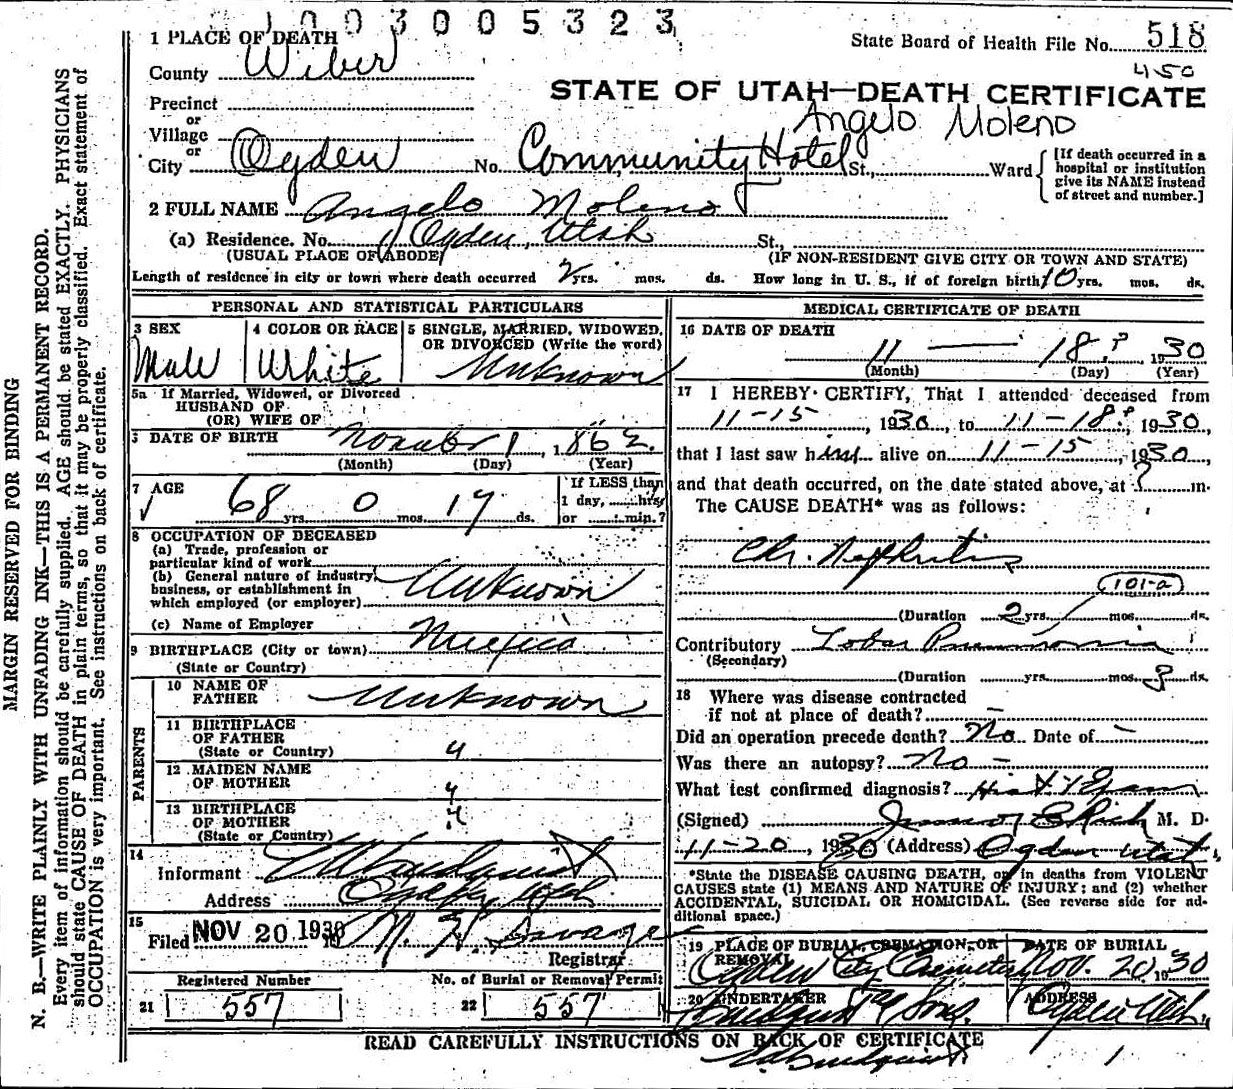 1003005323
1 PLACE OF DEATH
State Board of Health File No. 518
County Weber
450
STATE OF UTAH—DEATH CERTIFICATE
Precinct
or
Angelo Moleno
Village
or
City Ogden No. Community Hotel St., Ward
[If death occurred in a
hospital or institution
give its NAME instead
of street and number.]
2 FULL NAME Angelo Moleno
(a) Residence. No. Ogden, Utah St.,
(USUAL PLACE OF ABODE) (IF NON-RESIDENT GIVE CITY OR TOWN AND STATE)
Length of residence in city or town where death occurred 2 yrs. mos. ds. How long in U. S., if of foreign birth 10 yrs. mos. ds.
PERSONAL AND STATISTICAL PARTICULARS
3 SEX 4 COLOR OR RACE 5 SINGLE, MARRIED, WIDOWED,
OR DIVORCED (Write the word)
Male White Unknown
5a If Married, Widowed, or Divorced
HUSBAND OF
(OR) WIFE OF
6 DATE OF BIRTH November 1, 1862
(Month) (Day) (Year)
7 AGE
68 yrs. 0 mos. 17 ds.
If LESS than
1 day, hrs
or min.?
8 OCCUPATION OF DECEASED
(a) Trade, profession or
particular kind of work
(b) General nature of industry,
business, or establishment in
which employed (or employer) Unknown
(c) Name of Employer
9 BIRTHPLACE (City or town) Mexico
(State or Country)
PARENTS
10 NAME OF
FATHER Unknown
11 BIRTHPLACE
OF FATHER
(State or Country) "
12 MAIDEN NAME
OF MOTHER "
13 BIRTHPLACE
OF MOTHER "
(State or Country)
14
Informant
Address Ogden, Utah
15
Filed NOV 20 1930
Registrar
Registered Number No. of Burial or Removal Permit
21 557 22 557
MEDICAL CERTIFICATE OF DEATH
16 DATE OF DEATH
11 — 18? 1930
(Month) (Day) (Year)
17 I HEREBY CERTIFY, That I attended deceased from
11-15, 1930, to 11-18?, 1930,
that I last saw him alive on 11-15, 1930
and that death occurred, on the date stated above, at ? m.
The CAUSE DEATH* was as follows:
Chr. Nephritis
101-a
(Duration 2 yrs. mos. ds.
Contributory Lobar Pneumonia
(Secondary)
(Duration yrs. mos. 3 ds.
18 Where was disease contracted
if not at place of death? —
Did an operation precede death? No Date of —
Was there an autopsy? No —
What test confirmed diagnosis?
(Signed) Rich M. D.
11-20, 1930 (Address) Ogden Utah
*State the DISEASE CAUSING DEATH, or in deaths from VIOLENT
CAUSES state (1) MEANS AND NATURE OF INJURY; and (2) whether
ACCIDENTAL, SUICIDAL OR HOMICIDAL. (See reverse side for ad-
ditional space.)
19 PLACE OF BURIAL, CREMATION, OR
REMOVAL
DATE OF BURIAL
Ogden City Cemetery Nov. 20 1930
20 UNDERTAKER ADDRESS
Lindquist & Sons. Ogden Utah.
READ CAREFULLY INSTRUCTIONS ON BACK OF CERTIFICATE
MARGIN RESERVED FOR BINDING
N. B.—WRITE PLAINLY WITH UNFADING INK—THIS IS A PERMANENT RECORD.
Every item of information should be carefully supplied. AGE should be stated EXACTLY. PHYSICIANS
should state CAUSE OF DEATH in plain terms, so that it may be properly classified. Exact statement of
OCCUPATION is very important. See instructions on back of certificate.